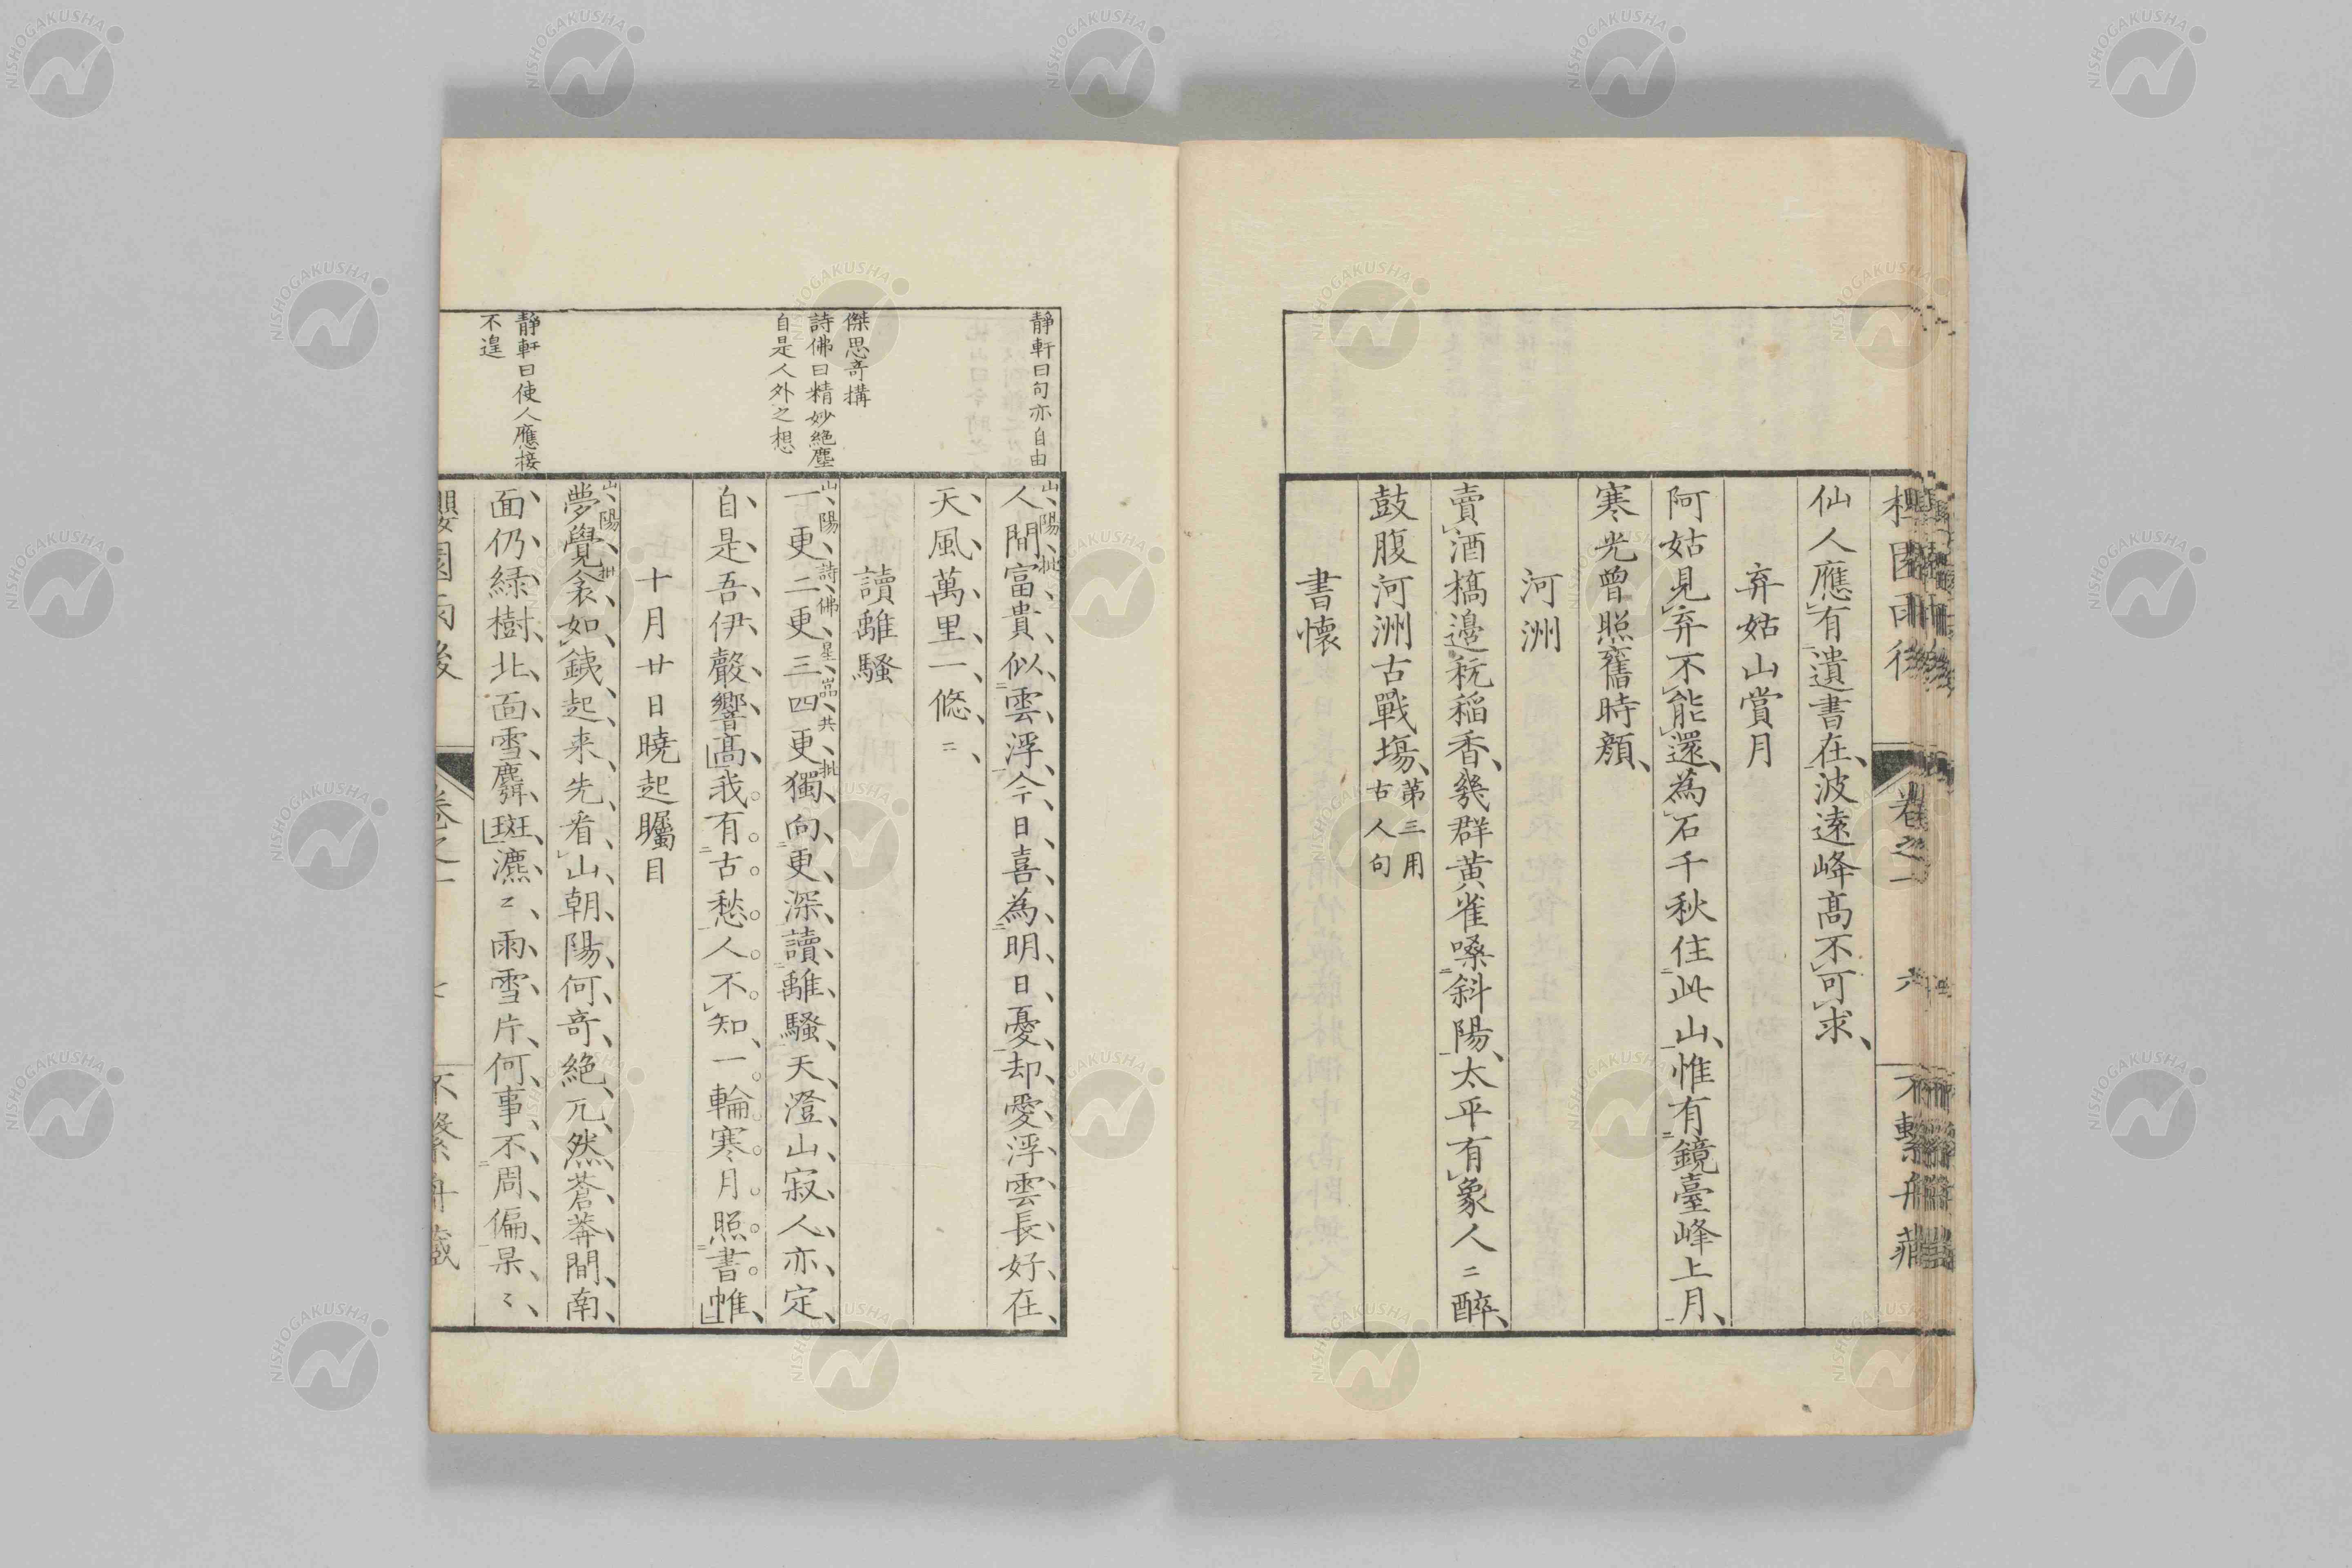 仙人應有遺書在波遠峰髙不可求
弃姑山賞月
阿姑見弃不能還為石千秋住此山惟有鏡臺峰上月
寒光曾照舊時顔
河洲
賣酒橋邊秔稲香幾群黄雀嗓斜陽太平有象人〻醉
鼓腹河洲古戰塲
第三用
古人句
書懷
卷之一
六
静軒曰句亦自由
山陽批
人間富貴似雲浮今日喜為明日憂却愛浮雲長好在
天風萬里一悠〻
讀離騒
傑思竒搆
詩佛曰精妙絶塵
自是人外之想
山陽詩佛星巌共批
一更二更三四更獨向更深讀離騒天澄山寂人亦定
自是吾伊聲響髙我有古愁人不知一輪寒月照書帷
十月廿日曉起矚目
静軒曰使人應接
不遑
山陽批
夢覺衾如銕起来先看山朝陽何竒絶兀然蒼莽間南
面仍緑樹北面雪麟斑瀌〻雨雪片何事不周偏杲〻
卷之一
NISHOGAKUSHA